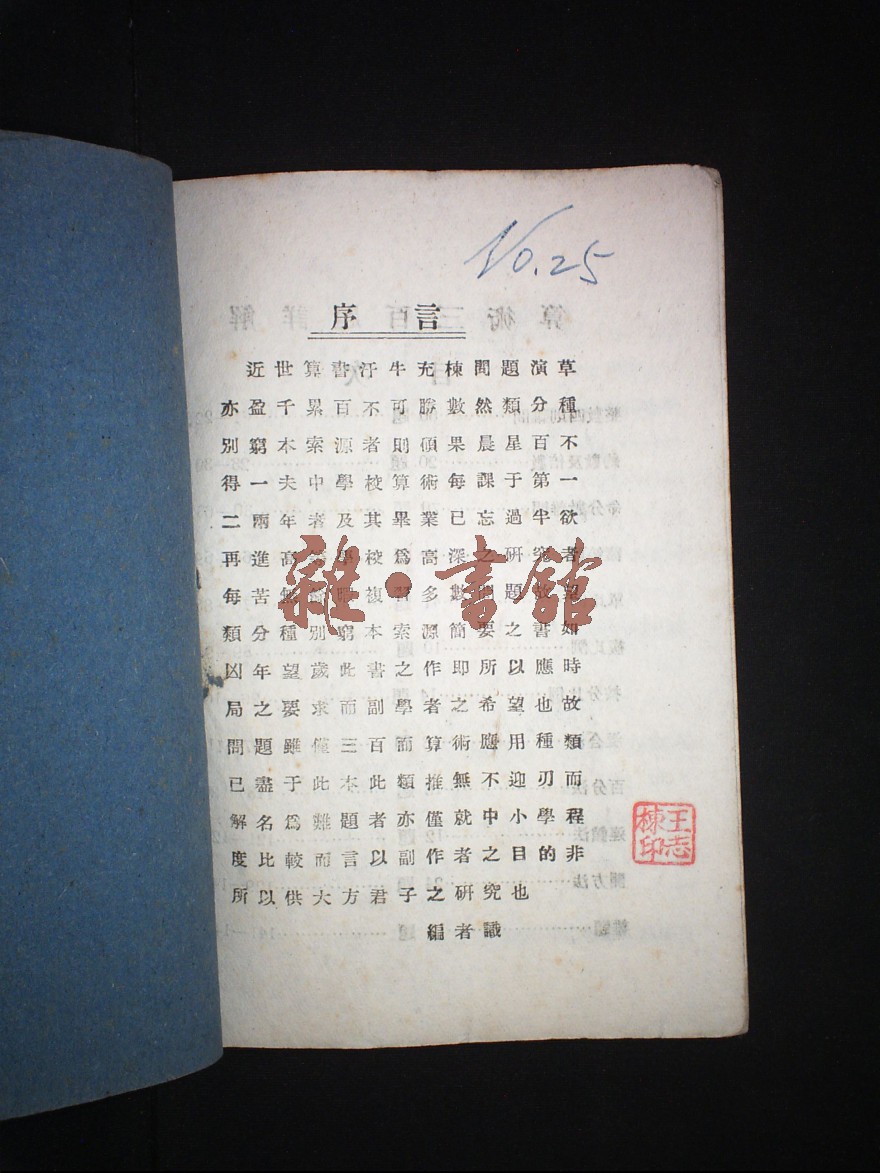 No.25
序言
近世算書汗牛充棟間題演草
亦盈千累百不可勝數然類分種
別窮本索源者則碩果晨星百不
得一夫中學校算術每課于第一
二兩年者及其畢業已忘過半欲
再進高等學校為高深之研究者
每苦無餘暇複習多數問題故望
類分種別窮本索源簡要之書如
凶年望歲此書之作即所以應時
局之要求而副學者之希望也故
問題雖僅三百而算術應用種類
已盡于此本此類推無不迎刃而
解名為難題者亦僅就中小學程
度比較而言以副作者之目的非
所以供大方君子之研究也
編者識
王志棟印
雜·書館